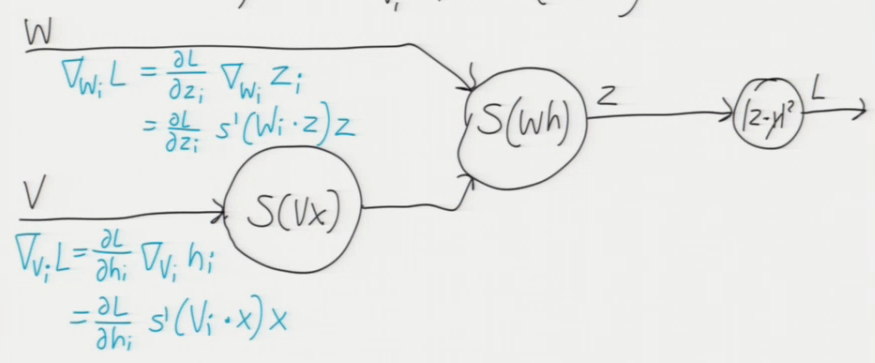 W
∇_{W_i} L = ∂L/∂z_i ∇_{W_i} z_i
= ∂L/∂z_i s'(W_i · z) z
S(Wh)
z
|z-y|²
L
V
S(Vx)
∇_{V_i} L = ∂L/∂h_i ∇_{V_i} h_i
= ∂L/∂h_i s'(V_i · x) x